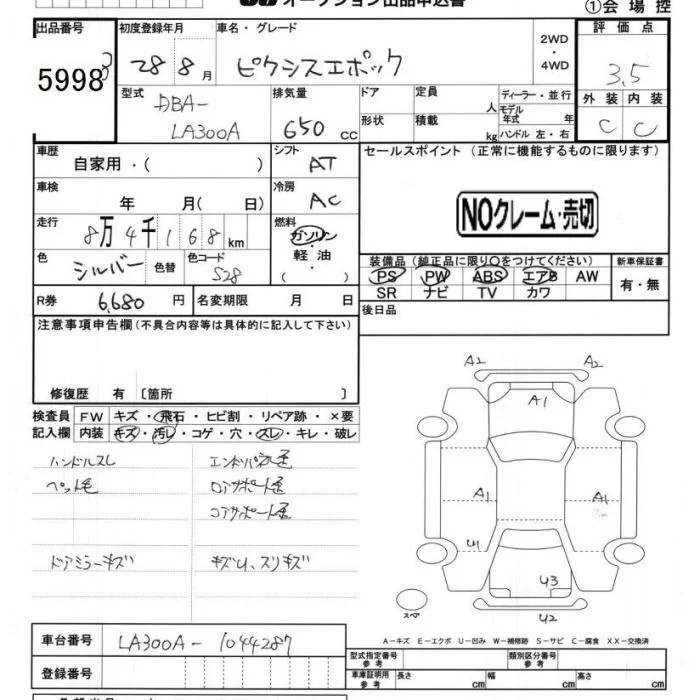 オークション出品申込書
①会場控
出品番号 初度登録年月 車名・グレード 2WD・4WD 評価点
5998 28 8月 ピクシスエポック 3.5
型式 排気量 ドア 定員 人 ディーラー・並行 外装 内装
DBA-LA300A 650cc 形状 積載 kg モデル年式 年 ハンドル 左・右 C C
車歴 シフト セールスポイント (正常に機能するものに限ります)
自家用・( ) AT
車検 冷房
年 月( 日) AC
NOクレーム・売切
走行 燃料
8万4千168km ガソリン・軽油・( )
色 色替 色コード 装備品 (純正品に限り○をつけてください) 新車保証書
シルバー S28 PS PW ABS エアB AW 有・無
SR ナビ TV カワ
R券 6,680円 名変期限 月 日 後日品
注意事項申告欄(不具合内容等は具体的に記入して下さい)
修復歴 有 〔箇所 〕
検査員 FW キズ・飛石・ヒビ割・リペア跡・×要
記入欄 内装 キズ・汚レ・コゲ・穴・スレ・キレ・破レ
ハンドルスレ
ペット毛
ドアミラーキズ
キズU、スリキズ
A2 A2
A1
A1 A1
U1
U3
U2
スペア
A-キズ E-エクボ U-凹み W-補修跡 S-サビ C-腐食 XX-交換済
車台番号 LA300A-1044287 型式指定番号 参考 類別区分番号 参考
登録番号 車庫証明用 参考 長さ cm 幅 cm 高さ cm